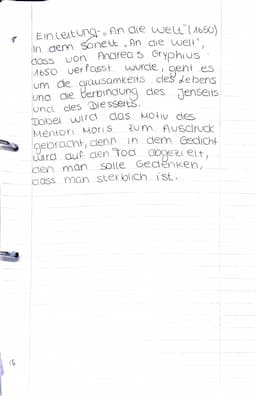 Einleitung-„An die Welt" (1650)
In dem Sonett „An die Welt",
dass von Andreas Gryphius
1650 verfasst wurde, geht es
um die grausamkeits des Lebens
und die Verbindung des Jenseits
und des Diesseits.
Dabei wird das Motiv des
Mentori Moris zum Ausdruck
gebracht, denn in dem Gedicht
wird auf den Tod abgezielt,
den man solle Gedenken,
dass man sterblich ist.